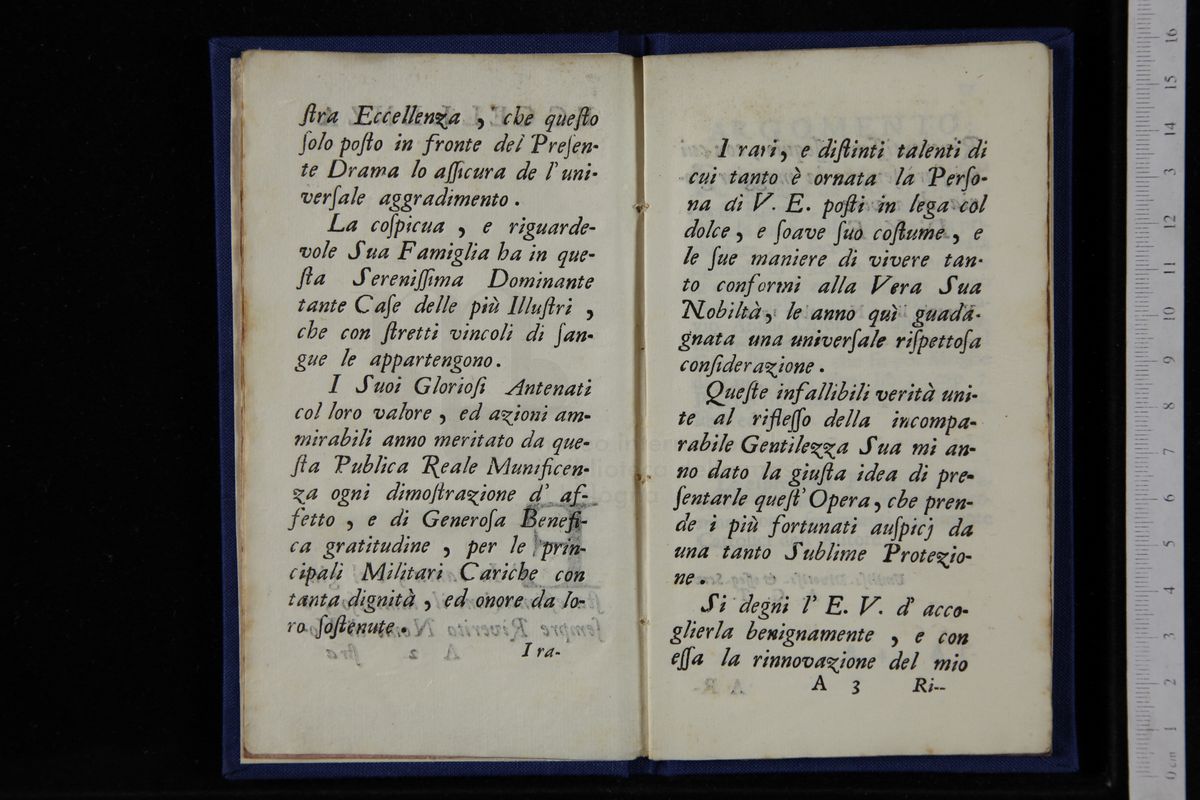 ſtra Eccellenza , che queſto
ſolo poſto in fronte del Preſen-
te Drama lo aſſicura de l' uni-
verſale aggradimento .
La coſpicua , e riguarde-
vole Sua Famiglia ha in que-
ſta Sereniſſima Dominante
tante Caſe delle più Illuſtri ,
che con ſtretti vincoli di ſan-
gue le appartengono .
I Suoi Glorioſi Antenati
col loro valore , ed azioni am-
mirabili anno meritato da que-
ſta Publica Reale Munificen-
za ogni dimoſtrazione d' af-
fetto , e di Generoſa Benefi-
ca gratitudine , per le prin-
cipali Militari Cariche con
tanta dignità , ed onore da lo-
ro ſoſtenute .
I ra-
I rari, e diſtinti talenti di
cui tanto è ornata la Perſo-
na di V. E. poſti in lega col
dolce , e ſoave ſuo coſtume , e
le ſue maniere di vivere tan-
to conformi alla Vera Sua
Nobiltà, le anno quì guada-
gnata una univerſale riſpettoſa
conſiderazione .
Queſte infallibili verità uni-
te al rifleſſo della incompa-
rabile Gentilezza Sua mi an-
no dato la giuſta idea di pre-
ſentarle queſt' Opera, che pren-
de i più fortunati auſpicj da
una tanto Sublime Protezio-
ne .
Si degni l' E. V. d' acco-
glierla benignamente , e con
eſſa la rinnovazione del mio
A 3 Ri--
0 cm 1 2 3 4 5 6 7 8 9 10 11 12 13 14 15 16